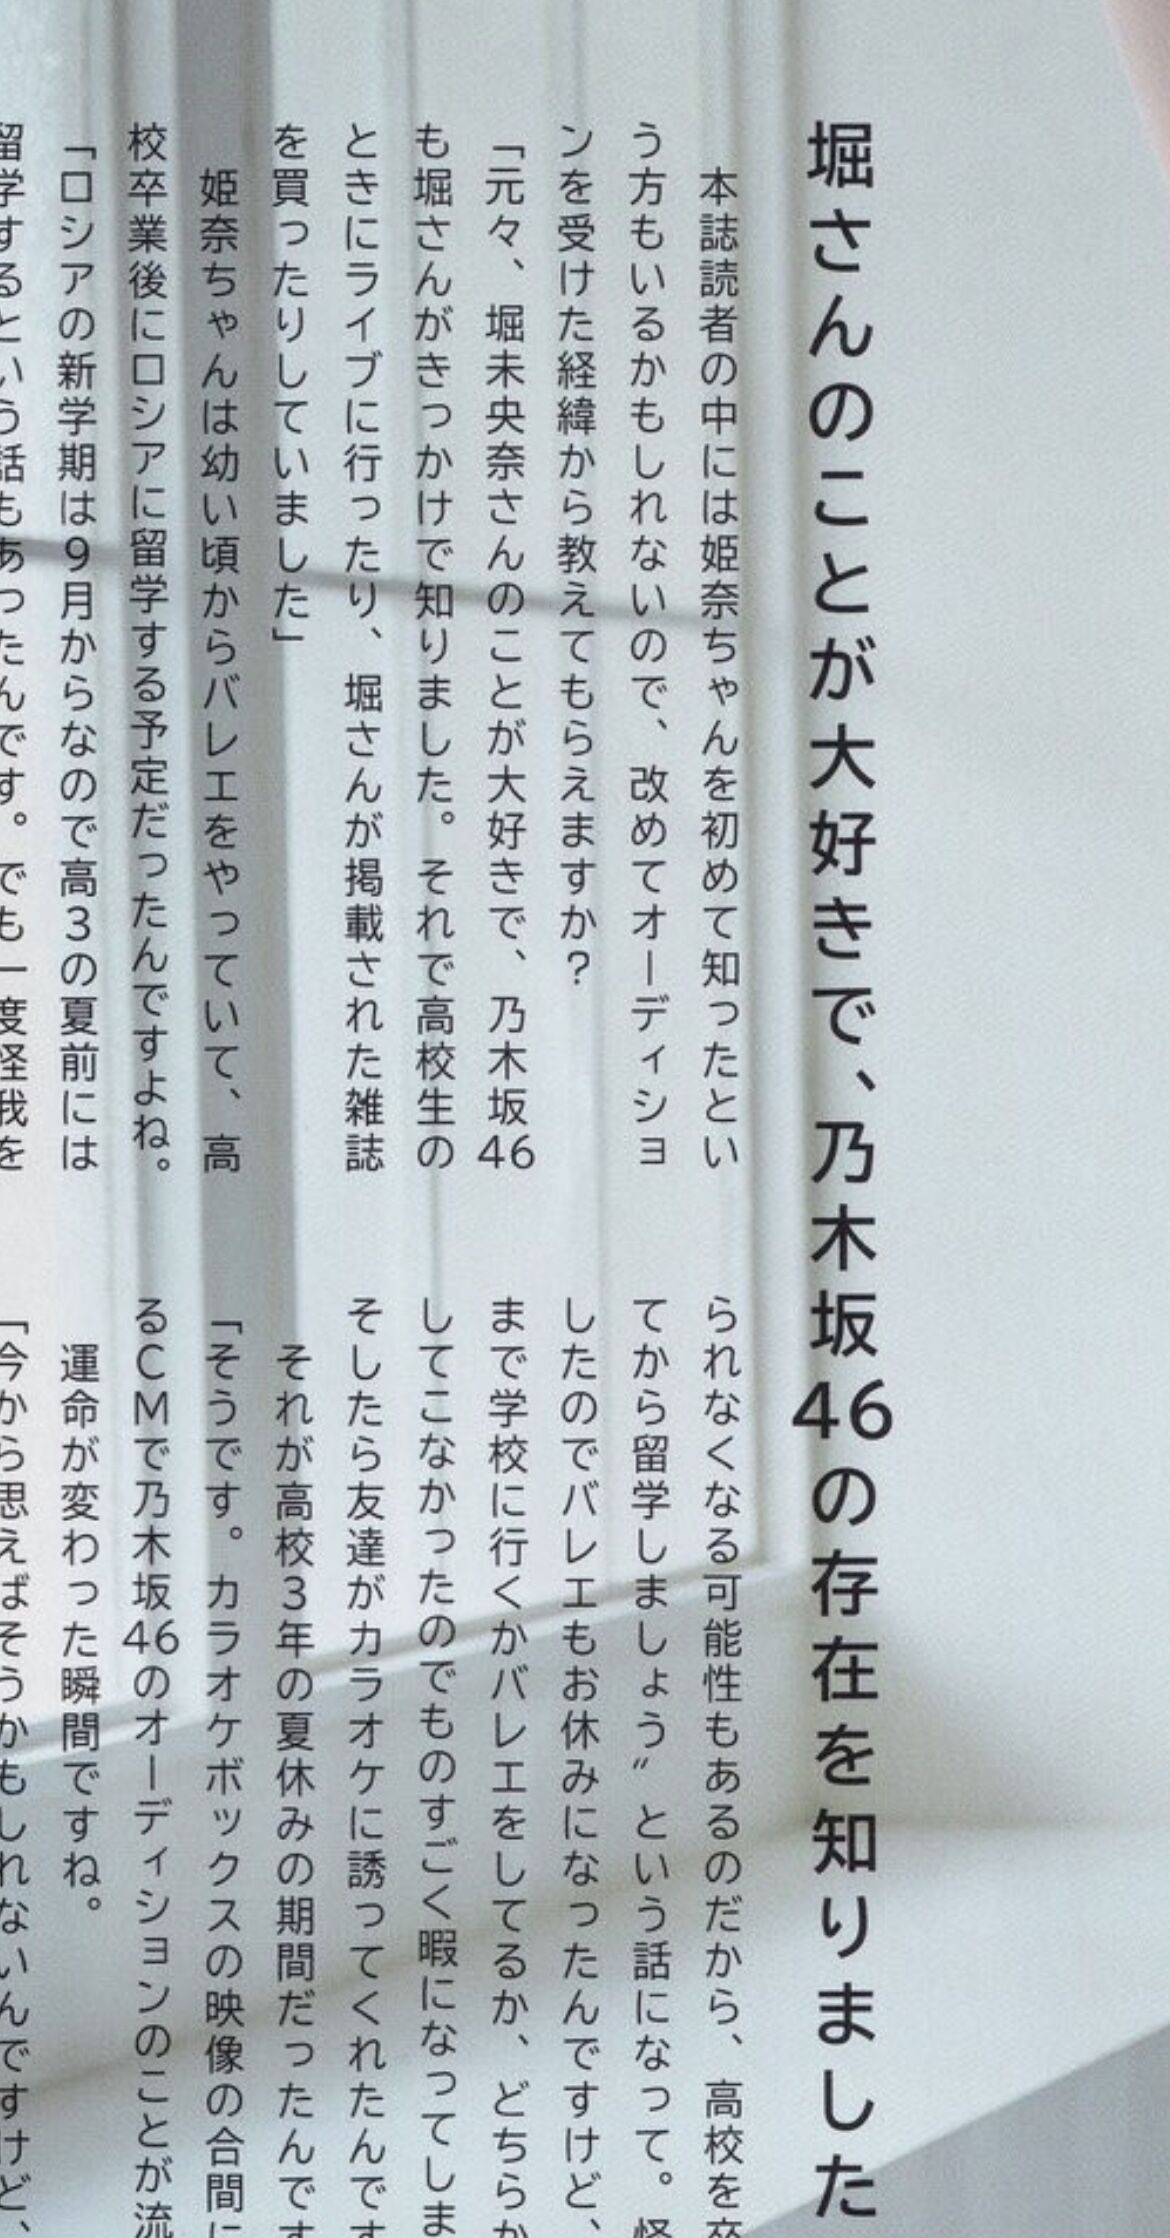 堀さんのことが大好きで、乃木坂46の存在を知りました
　本誌読者の中には姫奈ちゃんを初めて知ったとい
う方もいるかもしれないので、改めてオーディショ
ンを受けた経緯から教えてもらえますか？
「元々、堀未央奈さんのことが大好きで、乃木坂46
も堀さんがきっかけで知りました。それで高校生の
ときにライブに行ったり、堀さんが掲載された雑誌
を買ったりしていました」
　姫奈ちゃんは幼い頃からバレエをやっていて、高
校卒業後にロシアに留学する予定だったんですよね。
「ロシアの新学期は9月からなので高3の夏前には
留学するという話もあったんです。でも一度怪我を
られなくなる可能性もあるのだから、高校を卒
てから留学しましょう〟という話になって。怪
したのでバレエもお休みになったんですけど、
まで学校に行くかバレエをしてるか、どちらか
してこなかったのでものすごく暇になってしま
そしたら友達がカラオケに誘ってくれたんです
　それが高校3年の夏休みの期間だったんです
「そうです。カラオケボックスの映像の合間に
るCMで乃木坂46のオーディションのことが流
　運命が変わった瞬間ですね。
「今から思えばそうかもしれないんですけど、